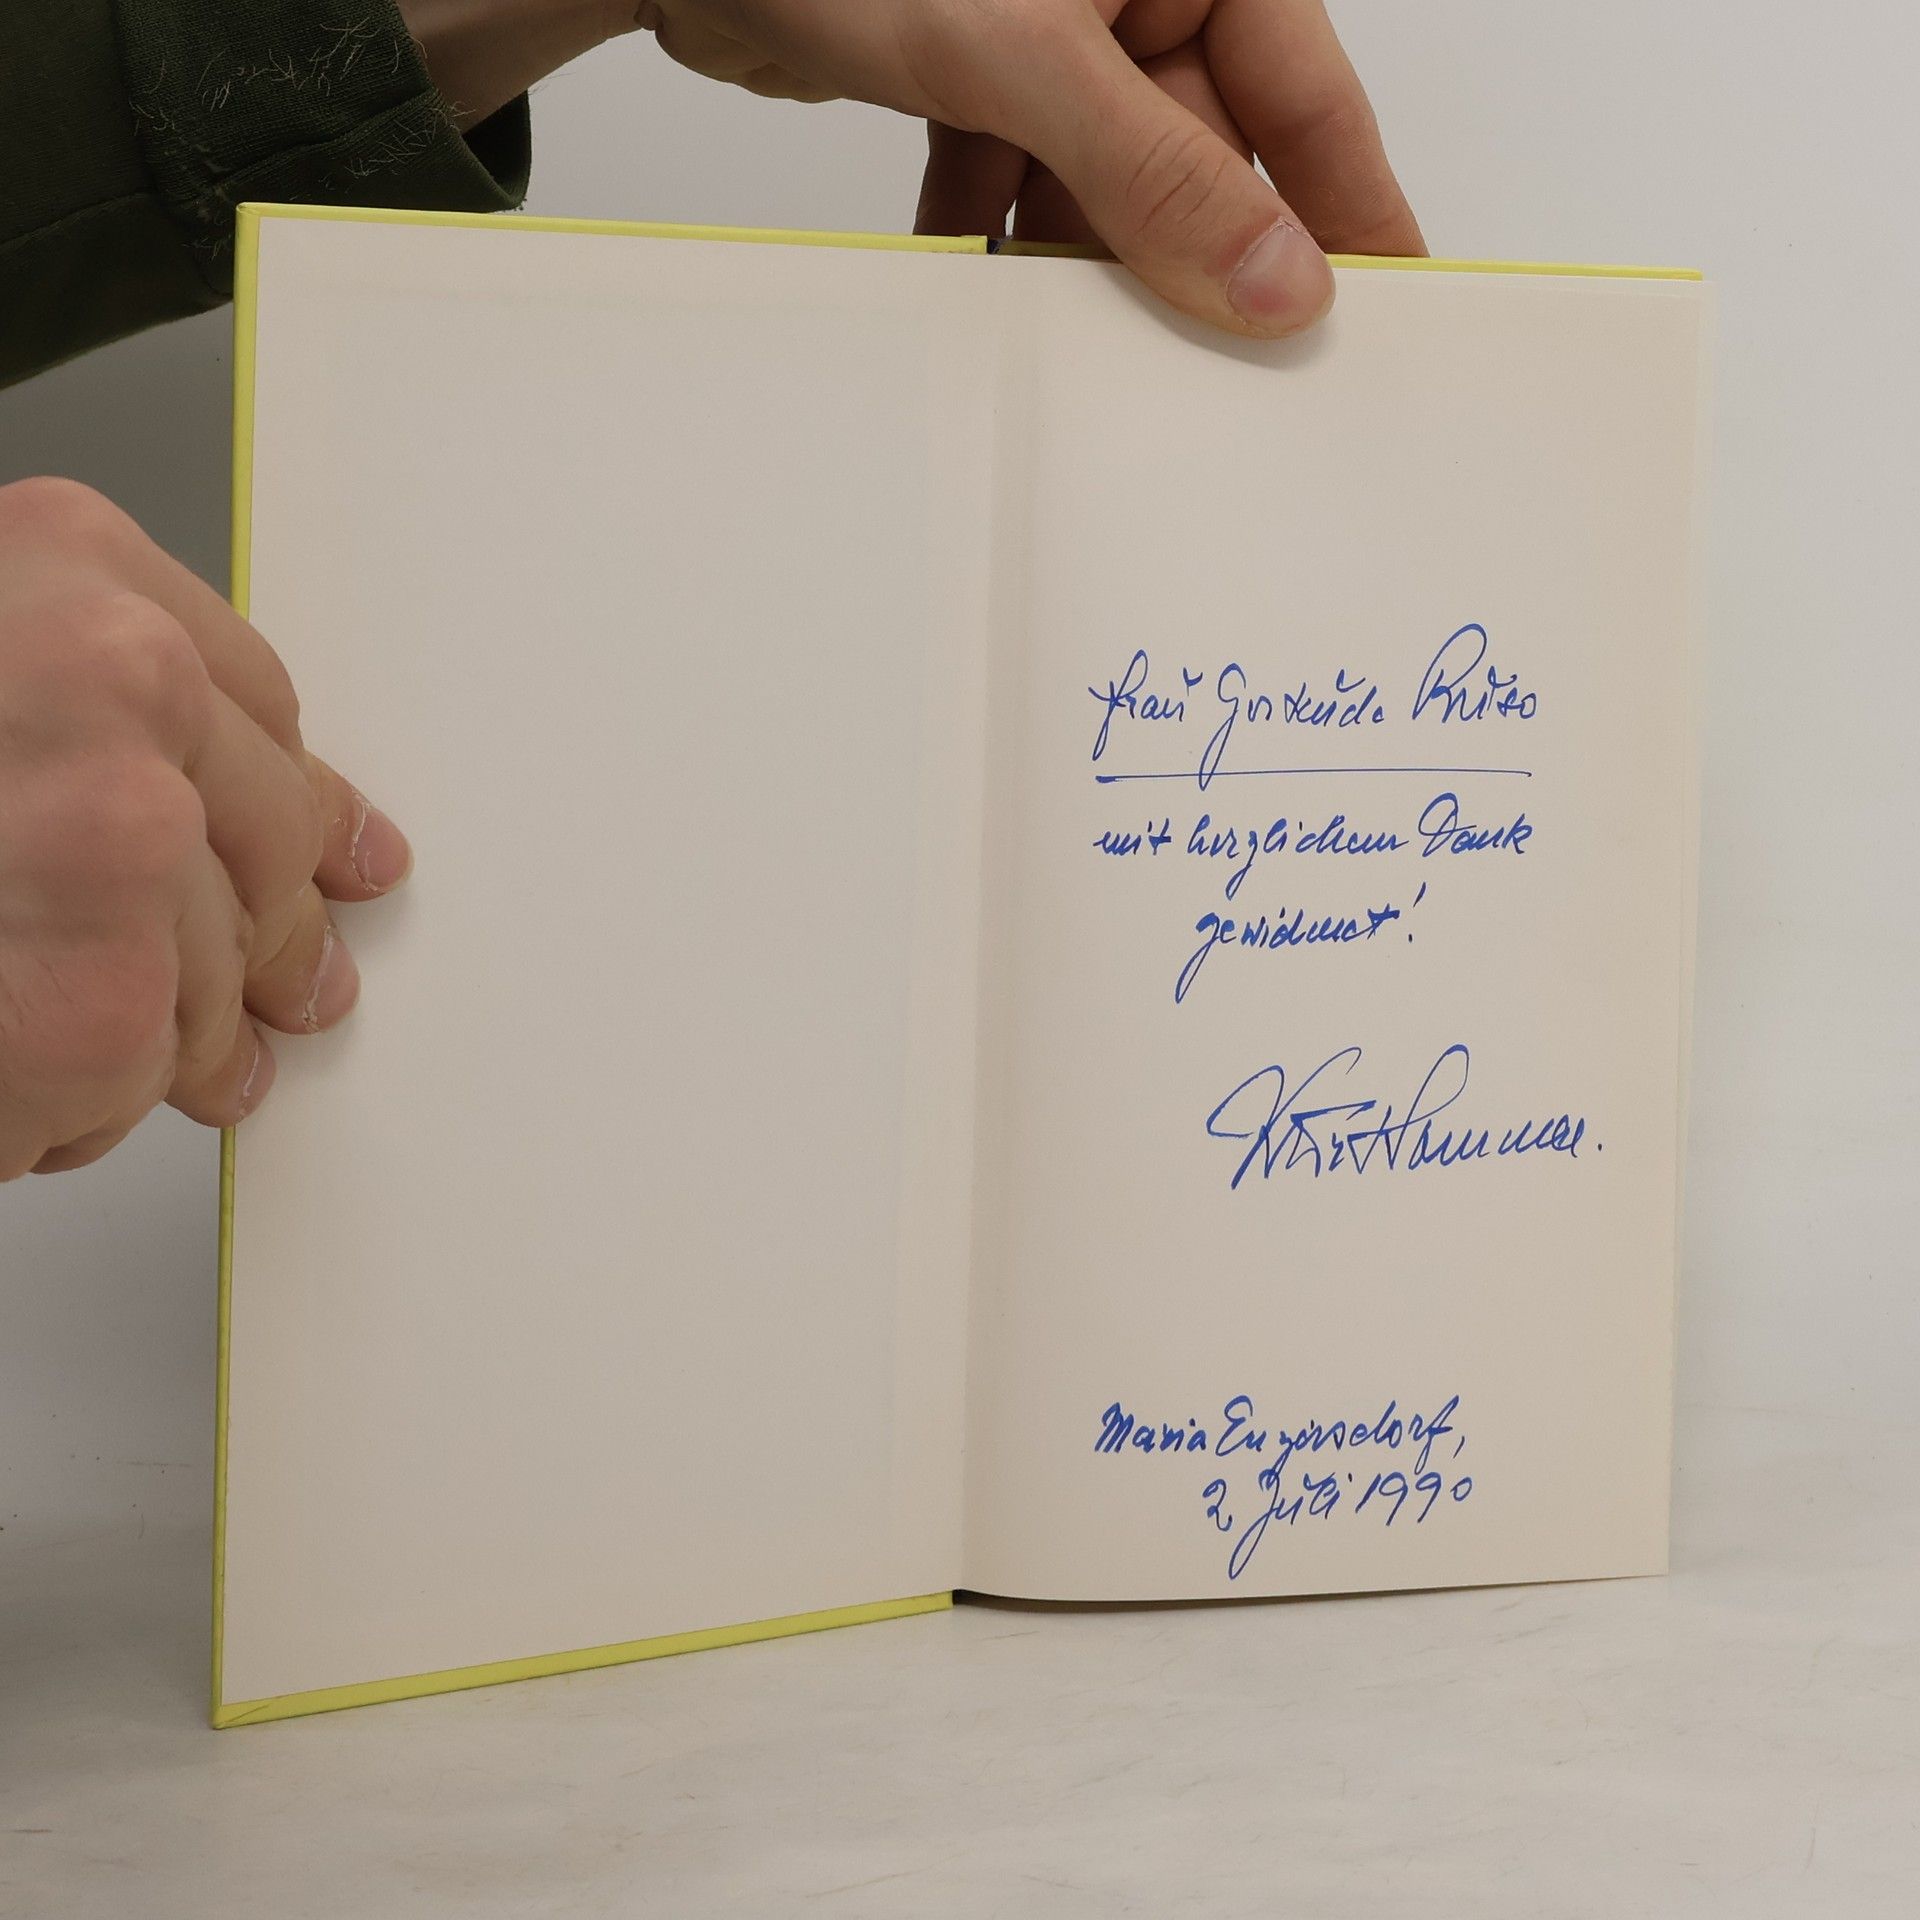 Frau Gertrude
mit herzlichem Dank
gewidmet!
Kurt Sommer.
Maria Enzersdorf,
2 Juli 1990